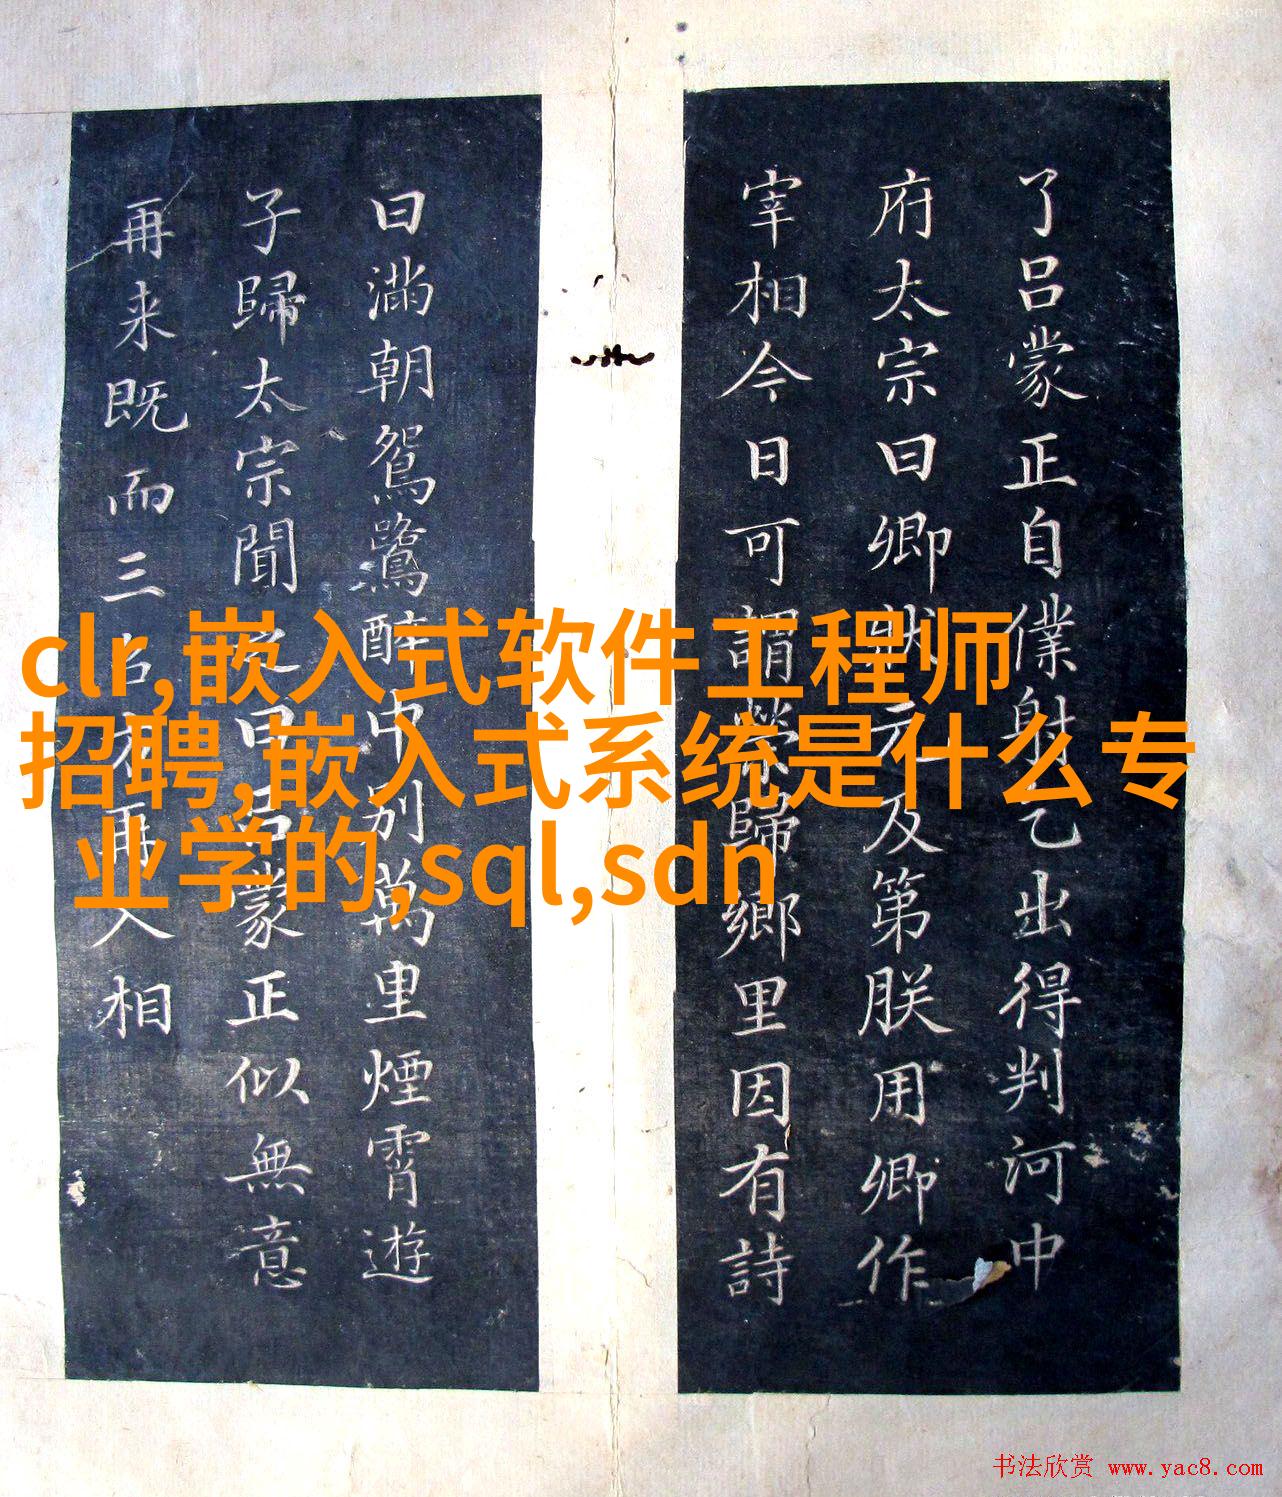 了吕蒙正自僕射乞出得判河中
府太宗曰卿狀元及第朕用卿作
宰相今日可謂榮歸鄉里因有詩
曰滿朝鴛鷺醉中别萬里煙霄遊
子歸太宗聞之曰吕蒙正似無意
再来既而三再入相
clr,嵌入式软件工程师
招聘,嵌入式系统是什么专
业学的,sql,sdn
书法欣赏 www.yac8.com